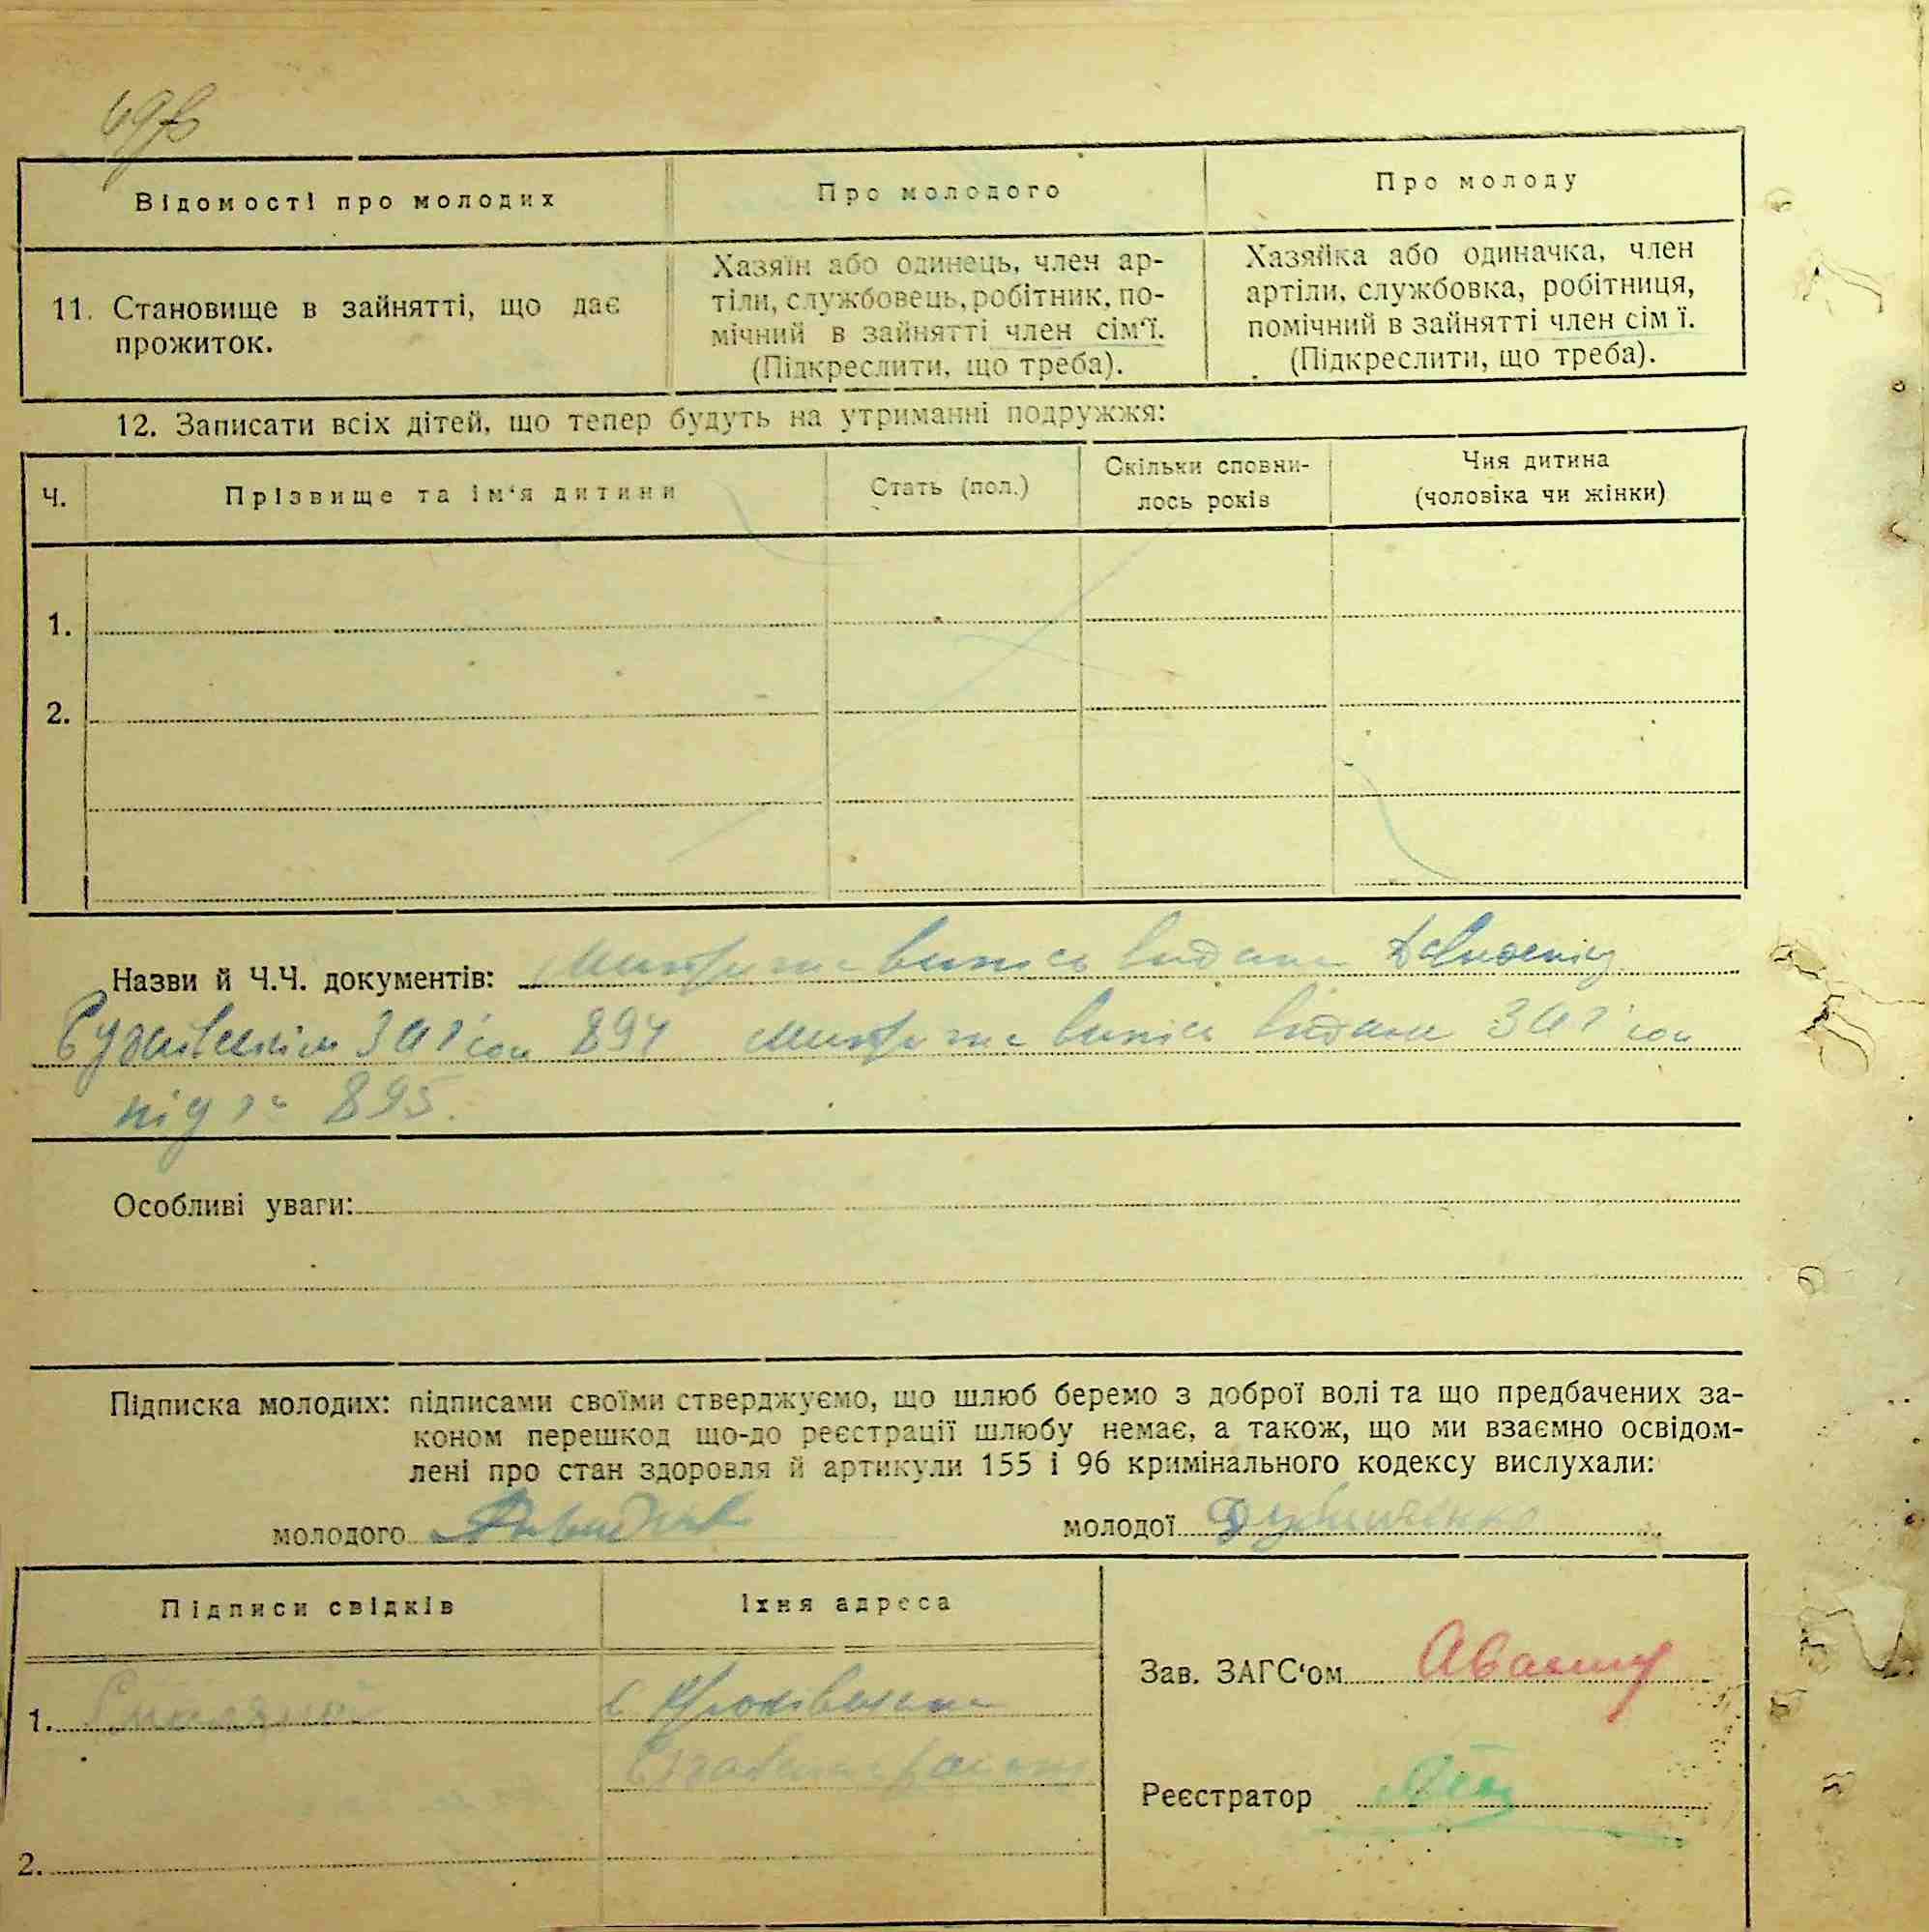 Відомості про молодих
Про молодого
Про молоду
11. Становище в зайнятті, що дає
прожиток.
Хазяїн або одинець, член ар-
тіли, службовець, робітник, по-
мічний в зайнятті член сім'ї.
(Підкреслити, що треба).
Хазяйка або одиначка, член
артіли, службовка, робітниця,
помічний в зайнятті член сім ї.
(Підкреслити, що треба).
12. Записати всіх дітей, що тепер будуть на утриманні подружжя:
Ч.
Прізвище та ім'я дитини
Стать (пол.)
Скільки сповни-
лось років
Чия дитина
(чоловіка чи жінки)
1.
2.
Назви й Ч.Ч. документів: Метрична випись видана
894 метрична випись видана
під № 895.
Особливі уваги:
Підписка молодих: підписами своїми стверджуємо, що шлюб беремо з доброї волі та що предбачених за-
коном перешкод що-до реєстрації шлюбу немає, а також, що ми взаємно освідом-
лені про стан здоровля й артикули 155 і 96 кримінального кодексу вислухали:
молодого
молодої
Підписи свідків
Їхня адреса
Зав. ЗАГС'ом
1.
Реєстратор
2.